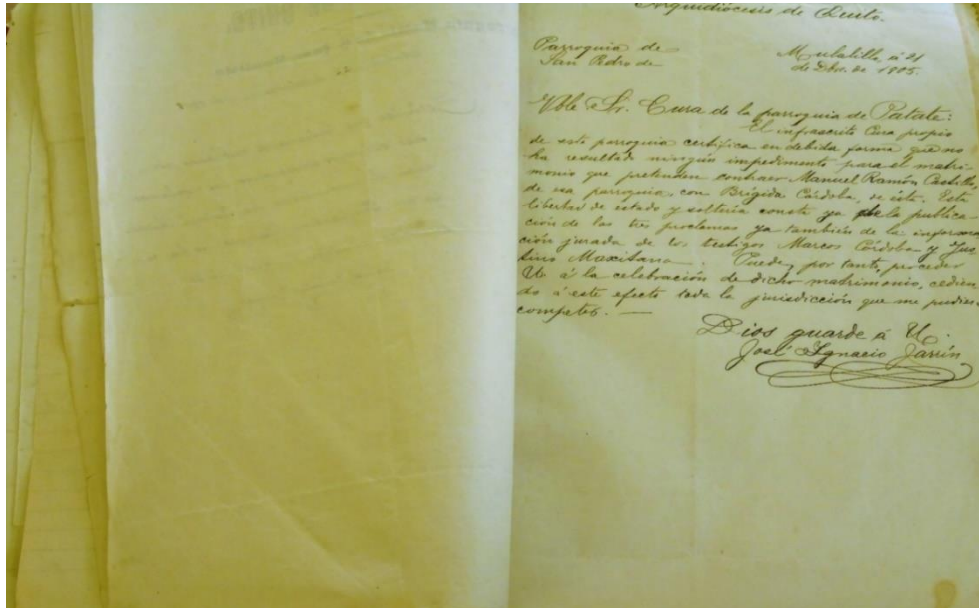 Arquidiócesis de Quito.
Parroquia de
San Pedro de
Mulalillo, á 21
de Dbre. de 1905.
Vble Sr. Cura de la parroquia de Patate:
El infrascrito Cura propio
de esta parroquia certifica en debida forma que no
ha resultado ningún impedimento para el matri-
monio que pretenden contraer Manuel Ramón Castillo
de esa parroquia, con Brígida Córdoba, de ésta. Esta
libertad de estado y soltería consta ya de la publica
ción de las tres proclamas ya también de la informa
ción jurada de los testigos Marcos Córdoba y Jus
tino . Puede, por tanto, proceder
U. á la celebración de dicho matrimonio, cedien
do á este efecto toda la jurisdicción que me pudiera
competer. —
Dios guarde á U.
José Ignacio Jarrín